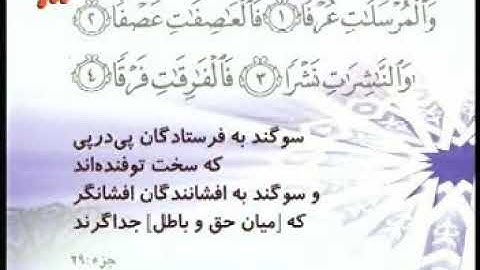 وَالْمُرْسَلَاتِ عُرْفًا ﴿١﴾ فَالْعَاصِفَاتِ عَصْفًا ﴿٢﴾
وَالنَّاشِرَاتِ نَشْرًا ﴿٣﴾ فَالْفَارِقَاتِ فَرْقًا ﴿٤﴾
سوگند به فرستادگان پی‌درپی
که سخت توفنده‌اند
و سوگند به افشانندگان افشانگر
که [میان حق و باطل] جداگرند
جزء:۲۹